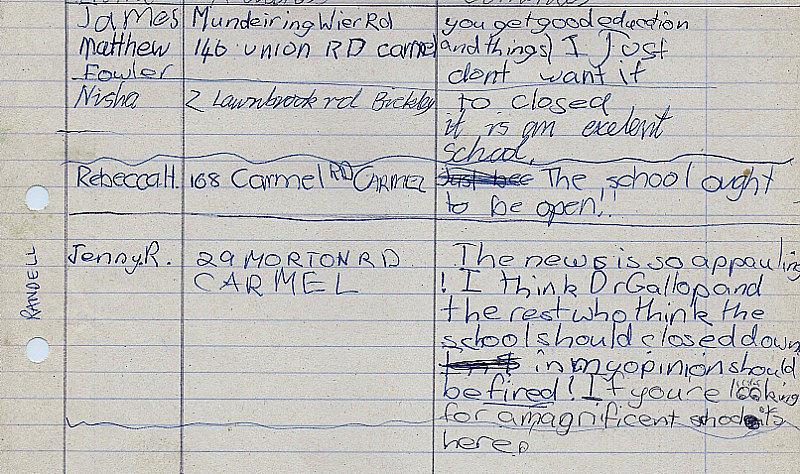 James Mundeiring Wier Rd you get good education
Matthew 146 union RD carmel and things) I Just
Fowler dont want it
Nisha 2 Lawnbrook rd Bickeley to closed
it is an exelent
school.
Rebecca H. 168 Carmel RD CARMEL The school ought
to be open!!
Jenny R. 29 MORTON RD The news is so appauling
CARMEL ! I think Dr Gallop and
the rest who think the
school should closed down
in my opinion should
be fired! If you're looking
for a magnificent school it's
here.
RANDELL